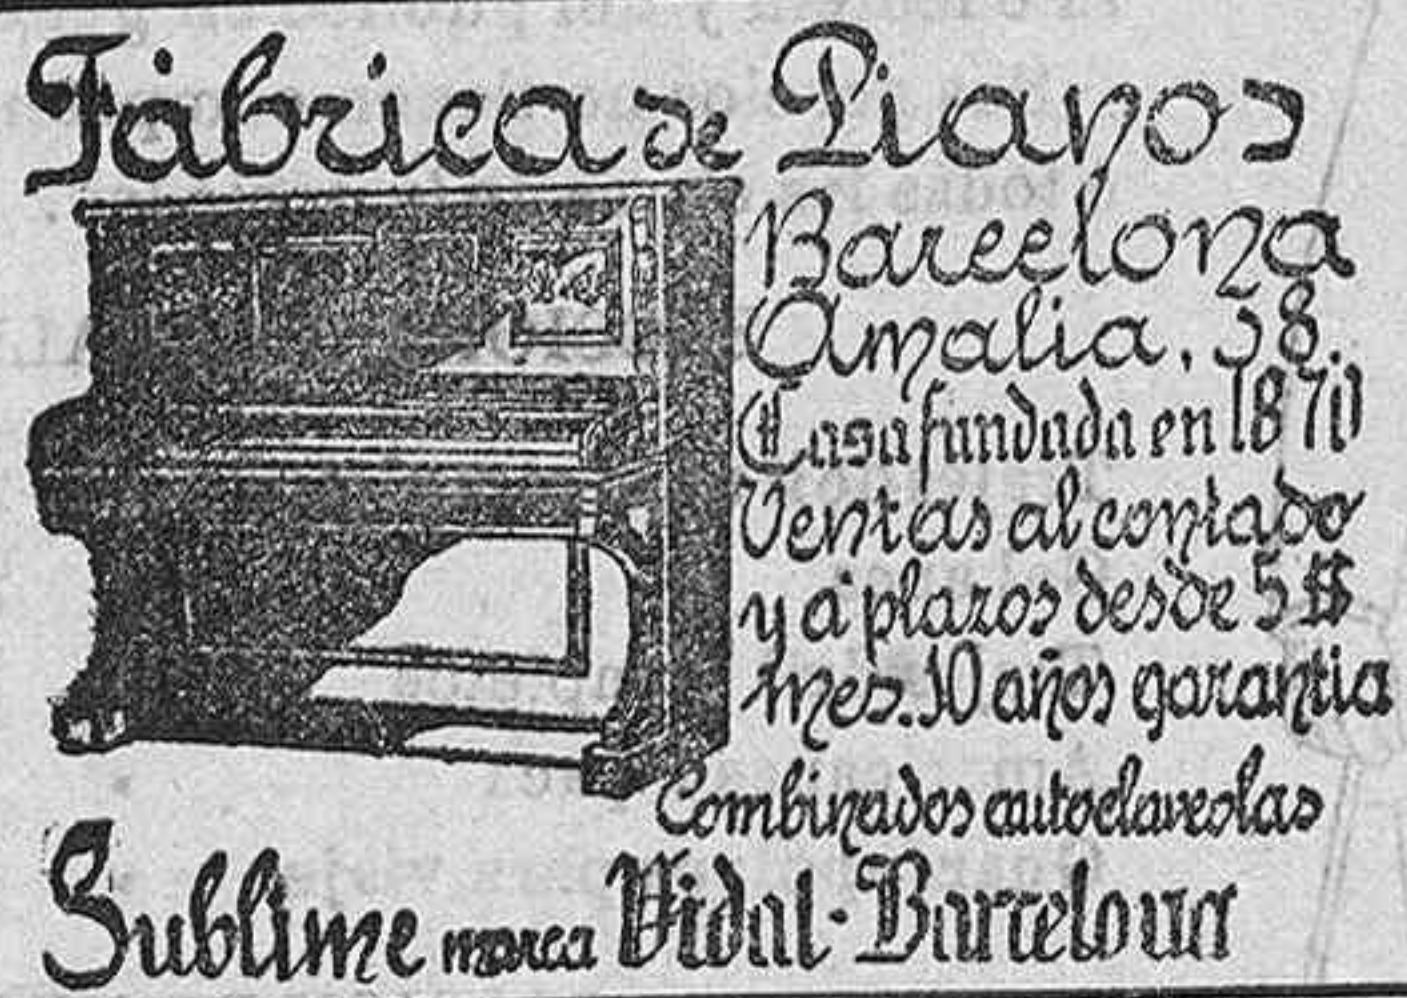 Fábrica de Pianos
Barcelona
Amalia, 38.
Casa fundada en 1870
Ventas al contado
y á plazos desde 5 $
mes. 10 años garantia
Combinados autoclaveolas
Sublime marca Vidal-Barcelona